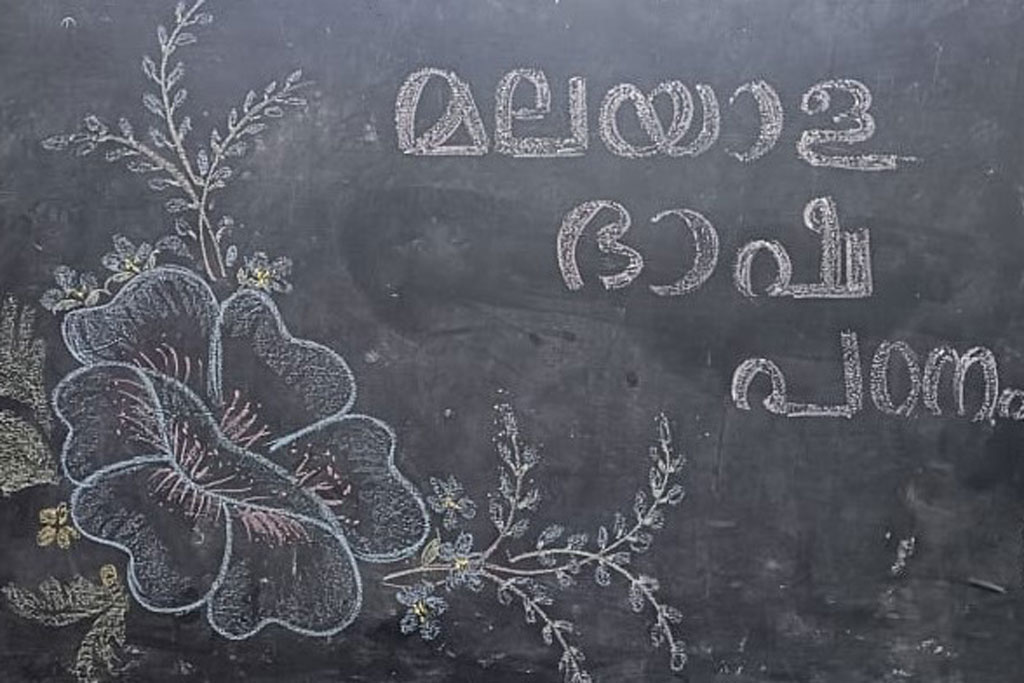 മലയാള
ഭാഷ
പഠനം